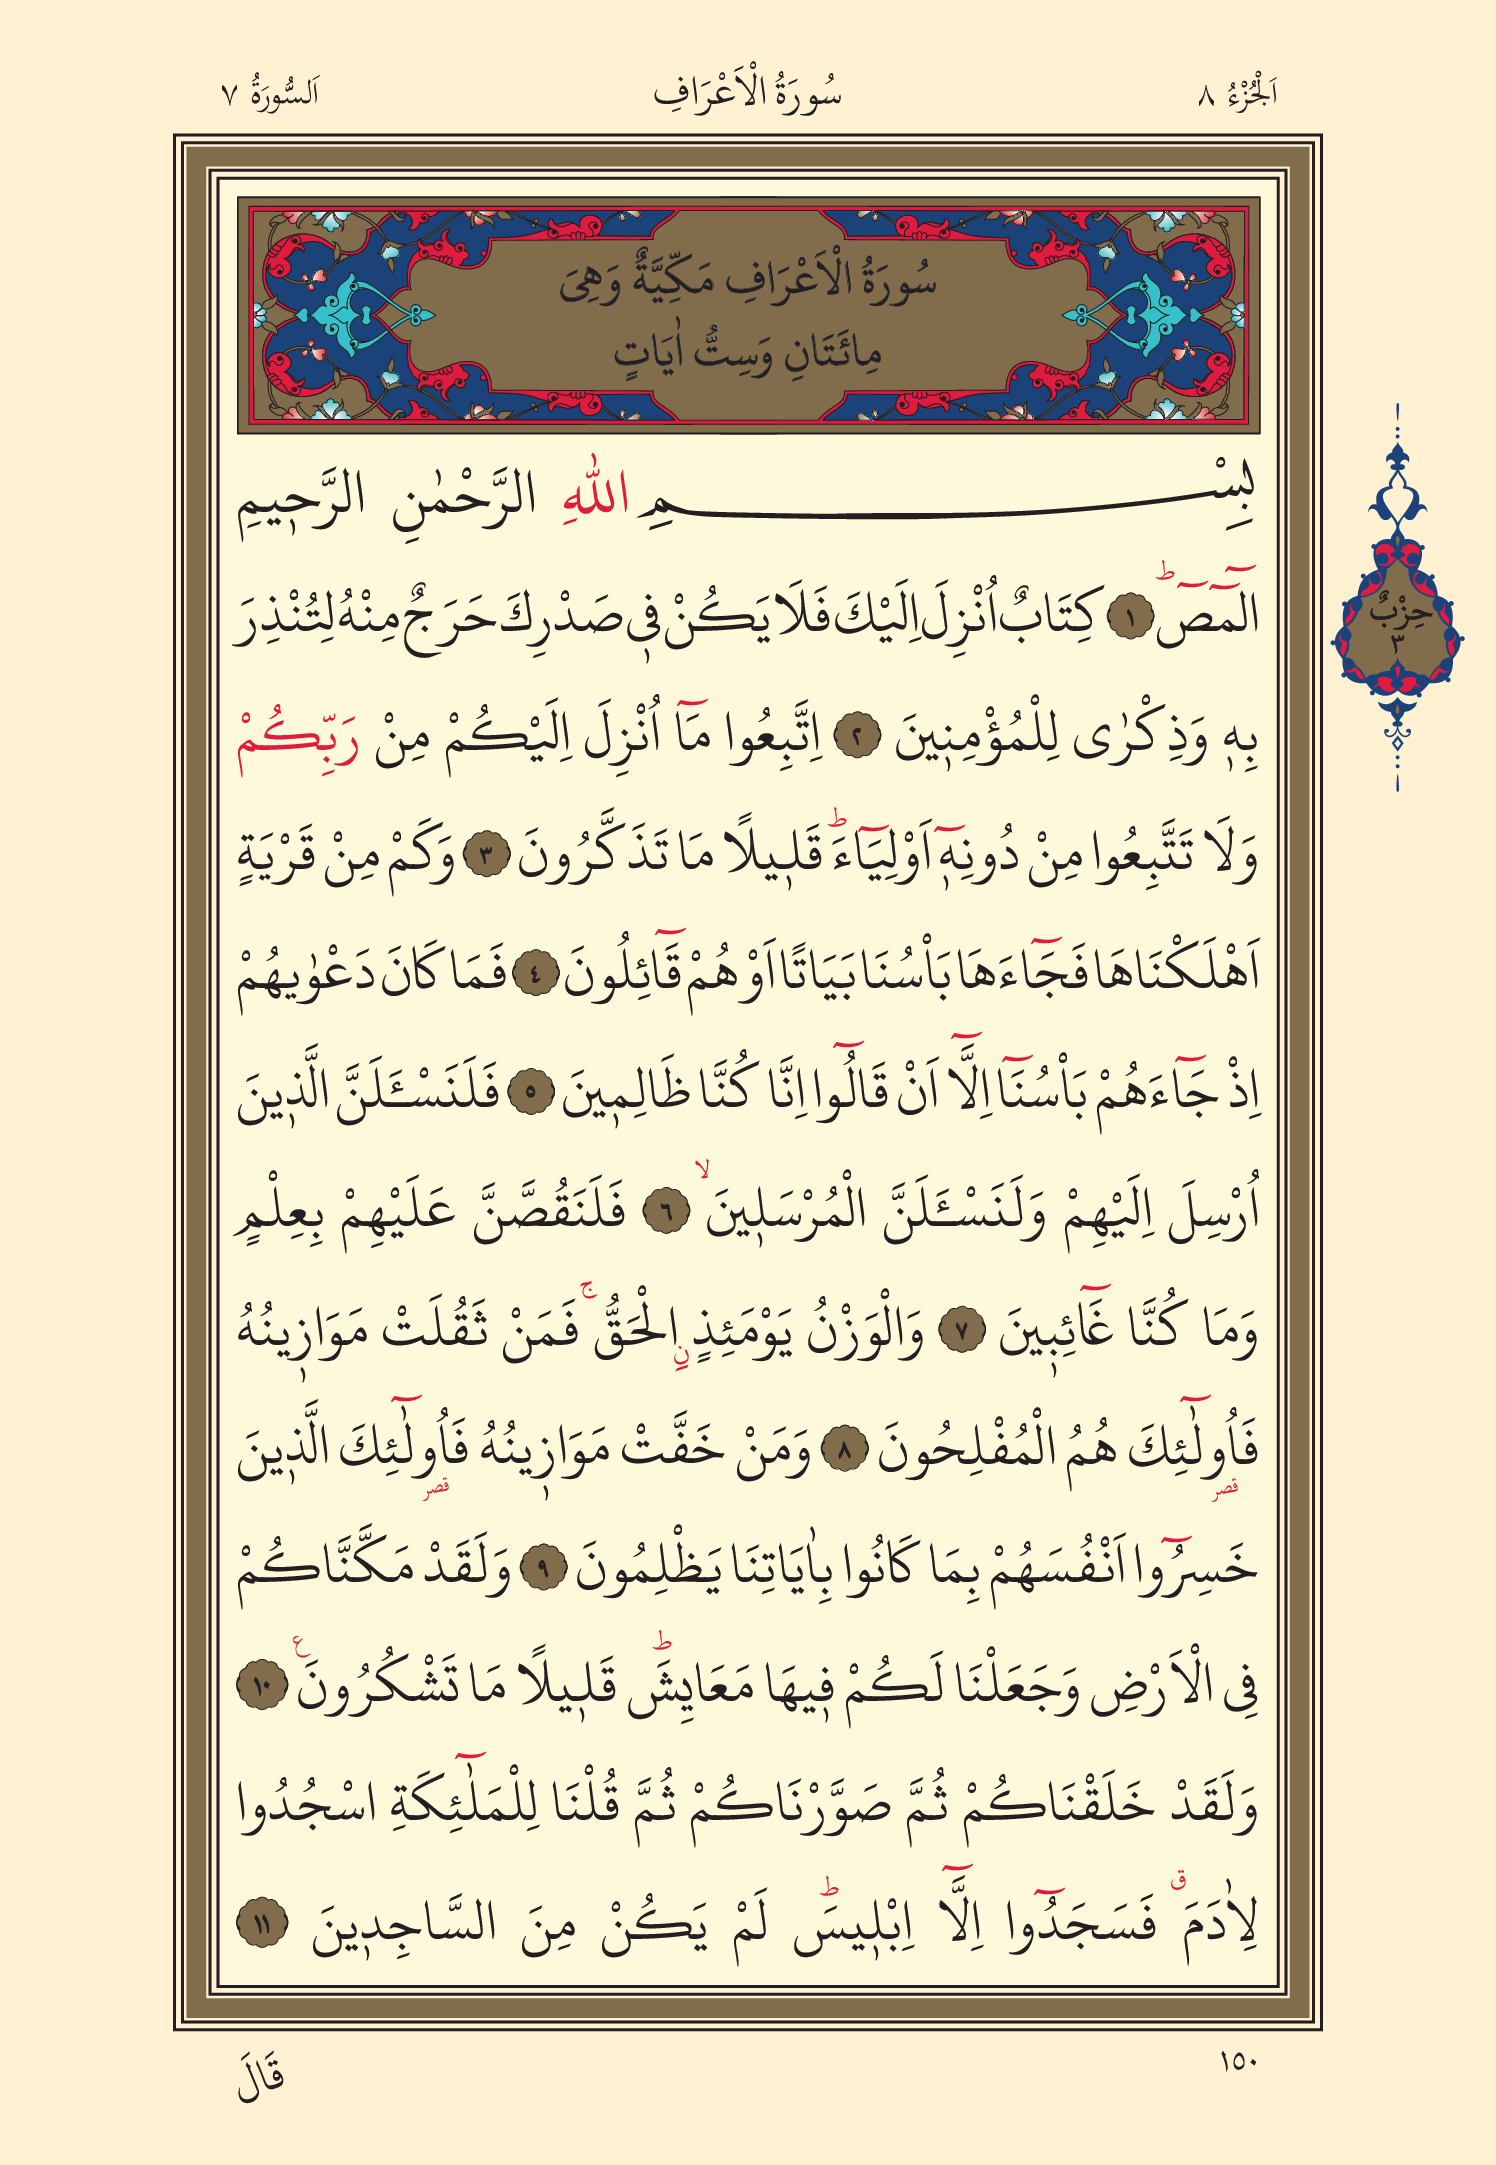 اَلْجُزْءُ ٨
سُورَةُ الْاَعْرَافِ
اَلسُّورَةُ ٧
سُورَةُ الْاَعْرَافِ مَكِّيَّةٌ وَهِىَ
مِائَتَانِ وَسِتُّ اٰيَاتٍ
بِسْمِ اللّٰهِ الرَّحْمٰنِ الرَّحٖيمِ
الٓمٓصٓ ط ١ كِتَابٌ اُنْزِلَ اِلَيْكَ فَلَا يَكُنْ فٖى صَدْرِكَ حَرَجٌ مِنْهُ لِتُنْذِرَ
حِزْبٌ
٣
بِهٖ وَذِكْرٰى لِلْمُؤْمِنٖينَ ٢ اِتَّبِعُوا مَٓا اُنْزِلَ اِلَيْكُمْ مِنْ رَبِّكُمْ
وَلَا تَتَّبِعُوا مِنْ دُونِهٖٓ اَوْلِيَٓاءَ ط قَلٖيلًا مَا تَذَكَّرُونَ ٣ وَكَمْ مِنْ قَرْيَةٍ
اَهْلَكْنَاهَا فَجَٓاءَهَا بَاْسُنَا بَيَاتًا اَوْ هُمْ قَٓائِلُونَ ٤ فَمَا كَانَ دَعْوٰيهُمْ
اِذْ جَٓاءَهُمْ بَاْسُنَٓا اِلَّٓا اَنْ قَالُٓوا اِنَّا كُنَّا ظَالِمٖينَ ٥ فَلَنَسْـَٔلَنَّ الَّذٖينَ
اُرْسِلَ اِلَيْهِمْ وَلَنَسْـَٔلَنَّ الْمُرْسَلٖينَ لا ٦ فَلَنَقُصَّنَّ عَلَيْهِمْ بِعِلْمٍ
وَمَا كُنَّا غَٓائِبٖينَ ٧ وَالْوَزْنُ يَوْمَئِذٍ نِ الْحَقُّ ج فَمَنْ ثَقُلَتْ مَوَازٖينُهُ
فَاُولٰٓئِكَ قصر هُمُ الْمُفْلِحُونَ ٨ وَمَنْ خَفَّتْ مَوَازٖينُهُ فَاُولٰٓئِكَ قصر الَّذٖينَ
خَسِرُٓوا اَنْفُسَهُمْ بِمَا كَانُوا بِاٰيَاتِنَا يَظْلِمُونَ ٩ وَلَقَدْ مَكَّنَّاكُمْ
فِى الْاَرْضِ وَجَعَلْنَا لَكُمْ فٖيهَا مَعَايِشَ ط قَلٖيلًا مَا تَشْكُرُونَ ع ١٠
وَلَقَدْ خَلَقْنَاكُمْ ثُمَّ صَوَّرْنَاكُمْ ثُمَّ قُلْنَا لِلْمَلٰٓئِكَةِ اسْجُدُوا
لِاٰدَمَ ق فَسَجَدُٓوا اِلَّٓا اِبْلٖيسَ ط لَمْ يَكُنْ مِنَ السَّاجِدٖينَ ١١
١٥٠
قَالَ